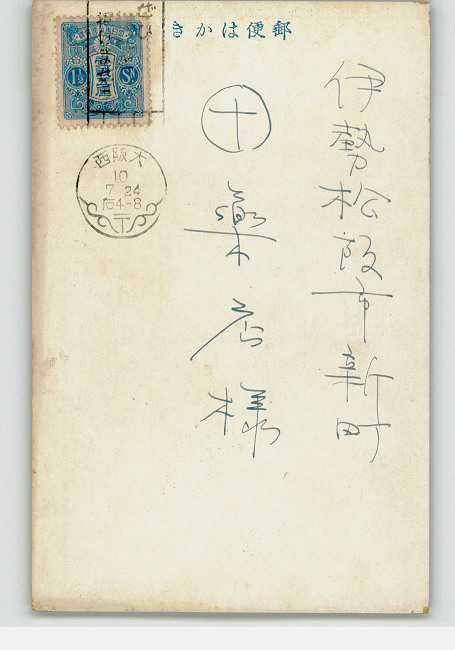 郵便はかき
伊勢松阪市新町
十薬店様
1½ Sn
大阪西
10
7 24
后4-8